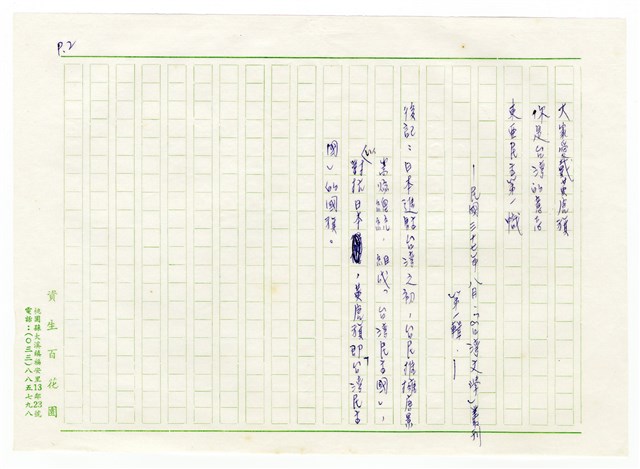 P.2
大家愛戴黃虎旗
你是台灣的意志
東亞民主第一幟
——民國三十七年八月·「台灣文學」叢刊
第一輯·——
後記：日本進駐台灣之初，台民推擁唐景
崧爲總統，組成「台灣民主國」，
以對抗日本，黃虎旗即「台灣民主
國」的國旗。
資生百花園
桃園縣大溪鎮福安里13鄰23號
電話：(０三三)八八五七九八